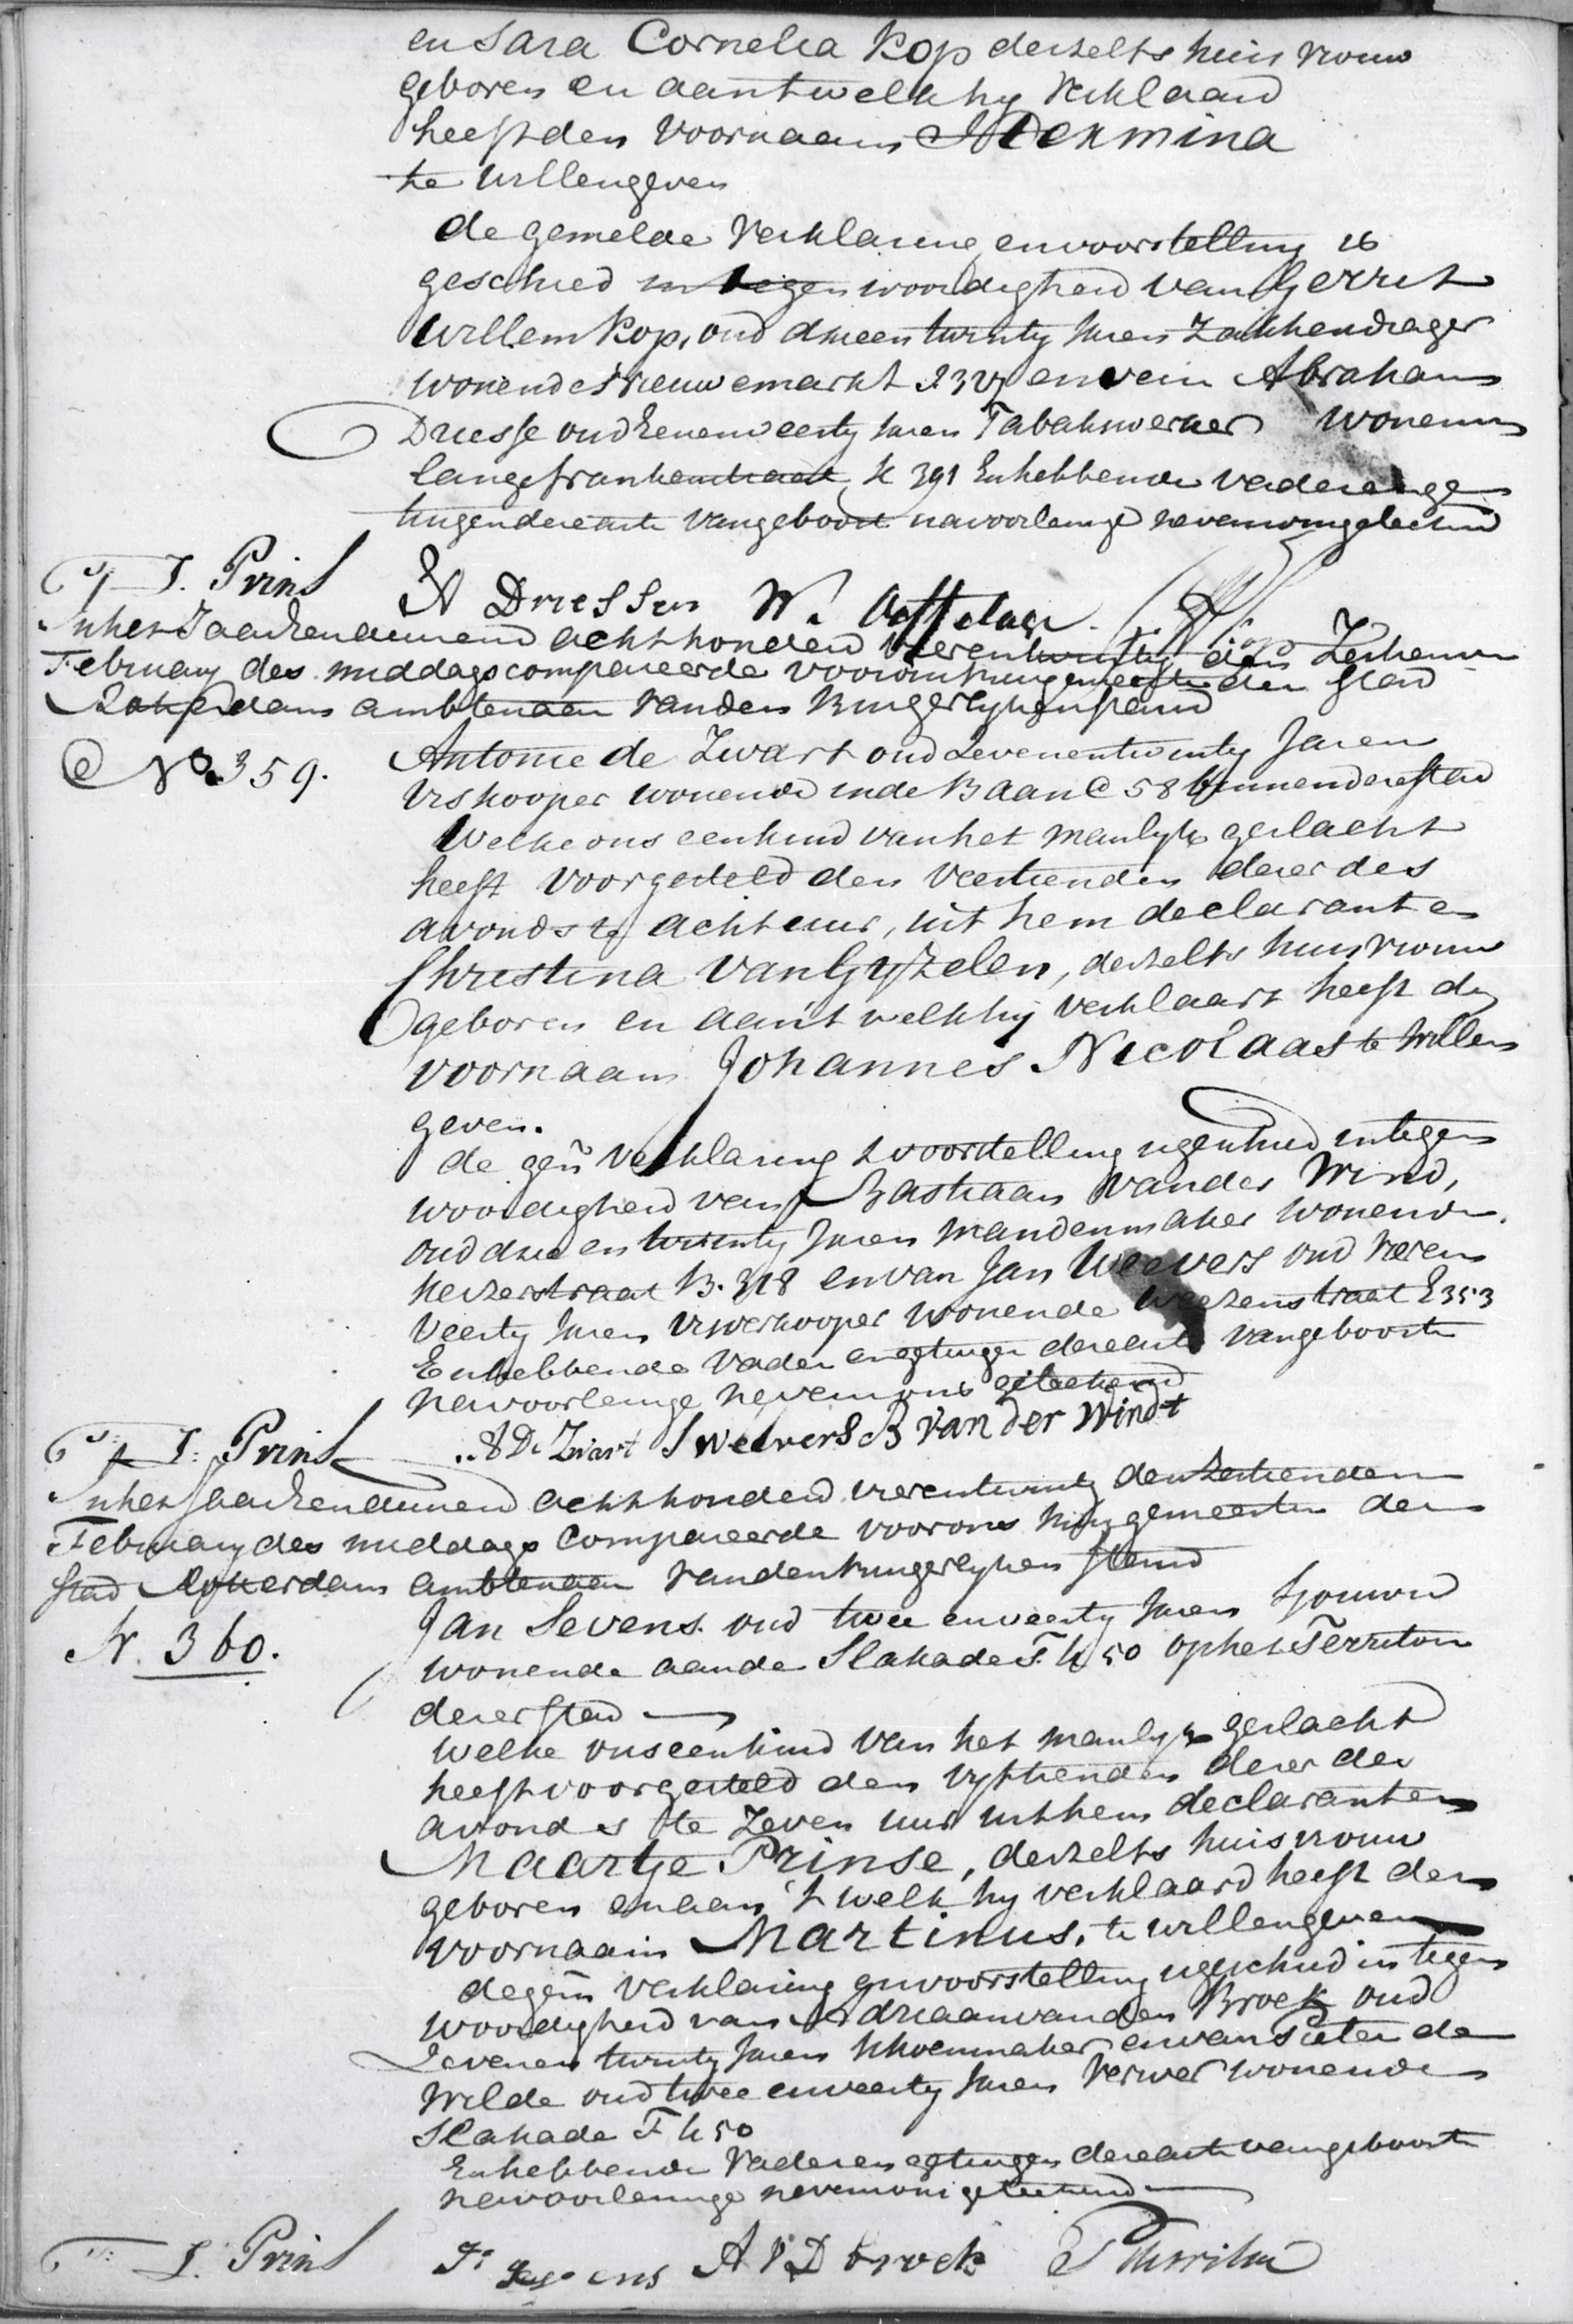 en Sara Cornelia Kop deszelfs huisvrouw
geboren en aan 't welk hy verklaard
heeft den voornaam Hermina
te willen geven
de gemelde verklaring en voorstelling is
geschied in tegenwoordigheid van Gerrit
Willem Kop, oud drieentwintig Jaren Zakkendrager
wonende Nieuwemarkt en van Abraham
Driesse oud Jaren Tabakwerker wonende
Lange frankenstraat K 391 En hebbende vader en ge
tuigen dere acte van geboorte na voorlezinge nevens ons geteekend
J. Prins A Driessen W.
In het Jaar Een duizend acht honderd vierentwintig den Zestienden
February des middags compareerde voor ons Burgemeester der Stad
Rotterdam ambtenaar van den Burgerlyken stand
No. 359. Antonie de Zwart oud Zevenentwintig Jaren
Viskooper wonende in de Baan C 58 binnen dese stad
Welke ons een kind van het manlyk geslacht
heeft voorgesteld den Veertienden dezer des
avonds te acht uur, uit hem declarant en
Christina van Gyzelen, deszelfs huisvrouw
geboren en aan 't welk hij verklaart heeft den
voornaam Johannes Nicolaas te willen
geven.
de gem verklaring & voorstelling is geschied in tegen
woordigheid van Bastiaan van der Wind,
oud drie en twintig Jaren Mandenmaker wonende
Keizerstraat B. 318 en van Jan Weevers oud vieren
Veertig Jaren Visverkooper wonende Weezenstraat E 353
En hebbende Vader en getuigen dere acte van geboorte
na voorlezinge nevens ons geteekend
J. Prins A De Zwart J Weevers B van der Windt
In het Jaar Een duizend acht honderd vierentwintig den Zestienden
February des middags Compareerde voor ons Burgemeester der
Stad Rotterdam ambtenaar van den Burgerlyken Stand
N. 360. Jan Sevens. oud twee en veertig Jaren Sjouwer
wonende aan de Slakade F. h 50 op het Territoir
dezer Stad
Welke ons een kind van het manlyk geslacht
heeft voorgesteld den Vyftienden dezer des
avonds te Zeven uur uit hem declarant en
Maartje Prinse, deszelfs huisvrouw
geboren en aan 't welk hy verklaard heeft den
voornaam Martinus, te willen geven
de gem verklaring en voorstelling is geschied in tegen
woordigheid van Adriaan van den Broek oud
Zevenen twintig Jaren Schoenmaker en van Pieter de
Wilde oud twee en veertig Jaren Verwer wonende
Slakade F h 50
En hebbende Vader en getuigen dere acte van geboorte
na voorlezinge nevens ons geteekend
J. Prins J: Sevens A V D Broek